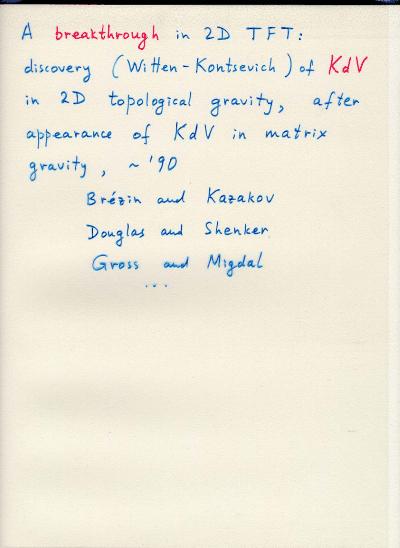 A breakthrough in 2D TFT:
discovery (Witten-Kontsevich) of KdV
in 2D topological gravity, after
appearance of KdV in matrix
gravity, ~ '90
Brézin and Kazakov
Douglas and Shenker
Gross and Migdal
...